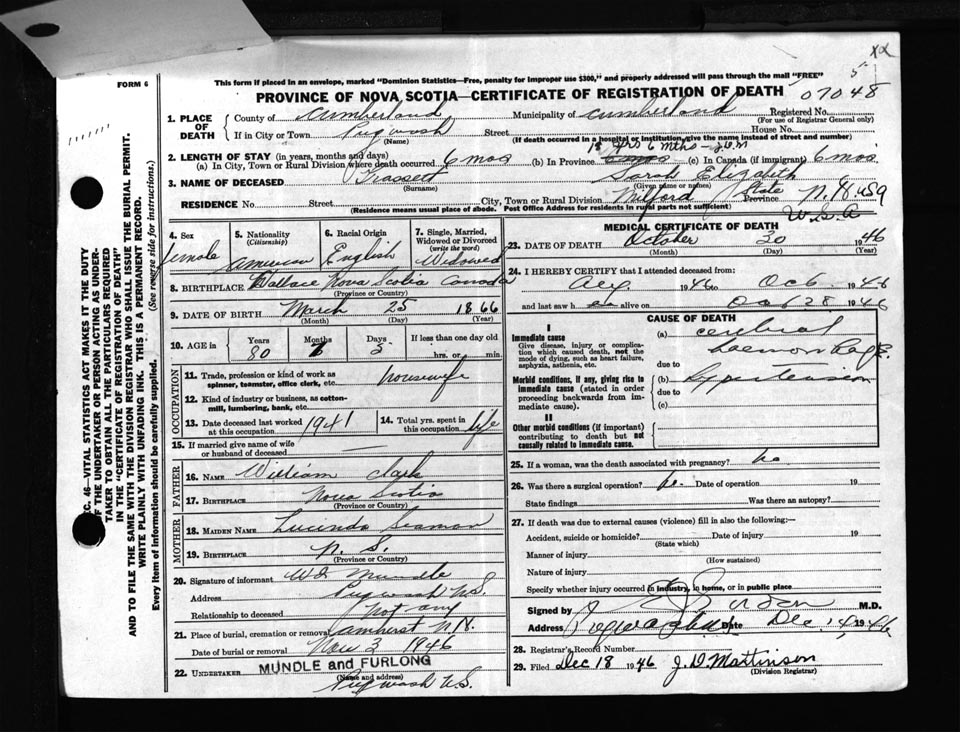 FORM 6
This form if placed in an envelope, marked "Dominion Statistics—Free, penalty for improper use $300," and properly addressed will pass through the mail "FREE"
PROVINCE OF NOVA SCOTIA—CERTIFICATE OF REGISTRATION OF DEATH
07048
1. PLACE OF DEATH
County of Cumberland Municipality of Cumberland Registered No.
(For use of Registrar General only)
If in City or Town Pugwash Street House No.
(Name) (If death occurred in a hospital or institution, give the name instead of street and number)
2. LENGTH OF STAY (in years, months and days)
(a) In City, Town or Rural Division where death occurred 6 mos (b) In Province 6 mos (c) In Canada (if immigrant) 6 mos
yrs 6 mths
3. NAME OF DECEASED Trassett Sarah Elizabeth
(Surname) (Given name or names)
RESIDENCE No. Street City, Town or Rural Division Milford State Province N.H. USA
(Residence means usual place of abode. Post Office Address for residents in rural parts not sufficient) U.S.A
4. Sex female
5. Nationality (Citizenship) American
6. Racial Origin English
7. Single, Married, Widowed or Divorced (write the word) Widowed
8. BIRTHPLACE Wallace Nova Scotia Canada
(Province or Country)
9. DATE OF BIRTH March 25 1866
(Month) (Day) (Year)
10. AGE in Years 80 Months 7 Days 5 If less than one day old hrs. or min.
OCCUPATION
11. Trade, profession or kind of work as spinner, teamster, office clerk, etc. housewife
12. Kind of industry or business, as cotton-mill, lumbering, bank, etc.
13. Date deceased last worked at this occupation 1941
14. Total yrs. spent in this occupation life
15. If married give name of wife or husband of deceased
FATHER
16. NAME William Clark
17. BIRTHPLACE Nova Scotia
(Province or Country)
MOTHER
18. MAIDEN NAME Lucinda Seaman
19. BIRTHPLACE N. S.
(Province or Country)
20. Signature of informant W D Mundle
Address Pugwash N.S.
Relationship to deceased not any
21. Place of burial, cremation or removal Amherst N.H.
Date of burial or removal Nov 3 1946
22. UNDERTAKER MUNDLE and FURLONG
(Name and address)
Pugwash N.S.
MEDICAL CERTIFICATE OF DEATH
23. DATE OF DEATH October 30 1946
(Month) (Day) (Year)
24. I HEREBY CERTIFY that I attended deceased from:
Aug 1946 to Oct 1946
and last saw h alive on Oct 28 1946
CAUSE OF DEATH
I
Immediate cause
Give disease, injury or complication which caused death, not the mode of dying, such as heart failure, asphyxia, asthenia, etc.
(a) cerebral haemorrhage
due to
Morbid conditions, if any, giving rise to immediate cause (stated in order proceeding backwards from immediate cause).
(b) hypertension
due to
(c)
II
Other morbid conditions (if important) contributing to death but not causally related to immediate cause.
25. If a woman, was the death associated with pregnancy? no
26. Was there a surgical operation? no. Date of operation 19
State findings Was there an autopsy?
27. If death was due to external causes (violence) fill in also the following:—
Accident, suicide or homicide? Date of injury 19
(State which)
Manner of injury
(How sustained)
Nature of injury
Specify whether injury occurred in industry, in home, or in public place
Signed by M.D.
Address Pugwash Date Dec. 14 1946
28. Registrar's Record Number
29. Filed Dec 18 1946 J. D. Mattinson
(Division Registrar)
SEC. 46—VITAL STATISTICS ACT MAKES IT THE DUTY
OF THE UNDERTAKER OR PERSON ACTING AS UNDER-
TAKER TO OBTAIN ALL THE PARTICULARS REQUIRED
IN THE "CERTIFICATE OF REGISTRATION OF DEATH"
AND TO FILE THE SAME WITH THE DIVISION REGISTRAR WHO SHALL ISSUE THE BURIAL PERMIT.
WRITE PLAINLY WITH UNFADING INK. THIS IS A PERMANENT RECORD.
Every item of information should be carefully supplied. (See reverse side for instructions.)